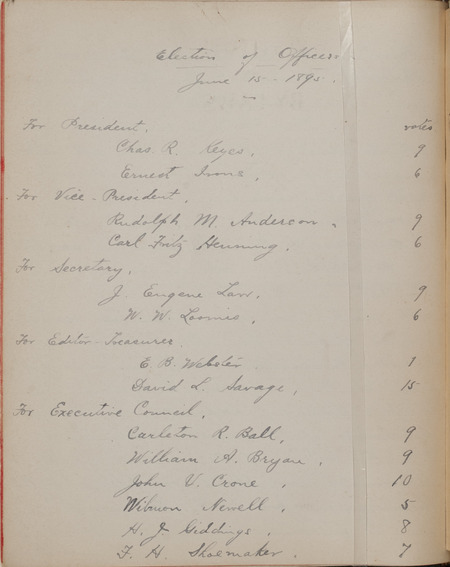 Election of Officers
June 15 - 1895.
For President, votes
Chas. R. Keyes, 9
Ernest Irons, 6
For Vice-President,
Rudolph M. Anderson, 9
Carl Fritz Henning, 6
For Secretary,
J. Eugene Law, 9
W. W. Loomis, 6
For Editor-Treasurer
E. B. Webster 1
David L. Savage, 15
For Executive Council,
Carleton R. Ball, 9
William A. Bryan, 9
John V. Crone, 10
Wilmon Newell, 5
H. J. Giddings, 8
F. H. Shoemaker. 7